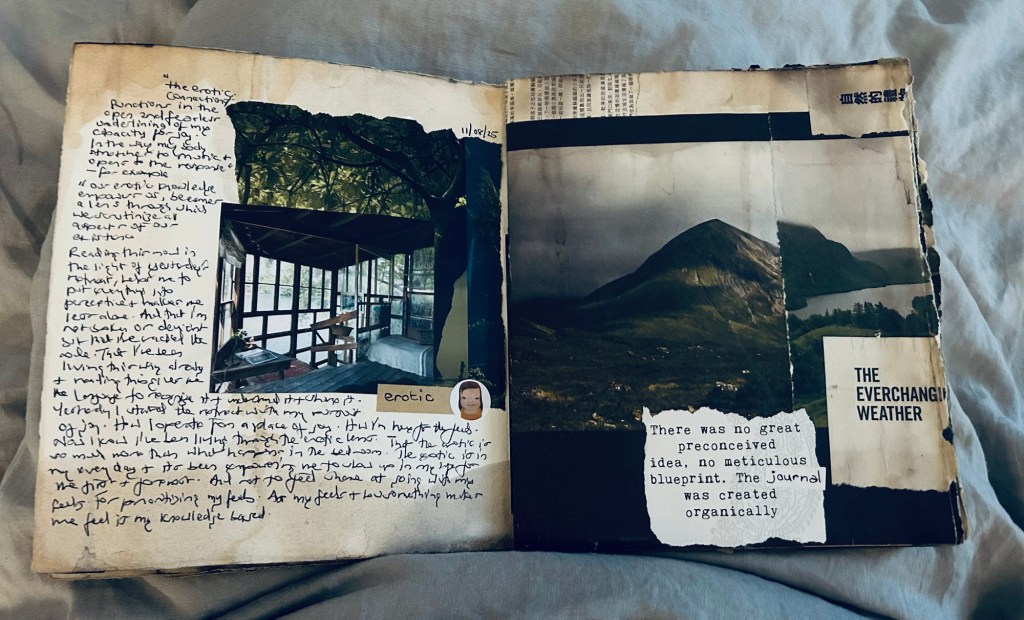 "the erotic
connection
functions in the
open and fearless
underlining of my
capacity for joy.
In the way my body
stretches to music +
opens to the response"
– for example
"our erotic knowledge
empowers us, becomes
a lens through which
we scrutinize all
aspects of our
existence
Reading this now in
the light of yesterday's
retreat, helps me to
put everything into
perspective + makes me
less alone. And that I'm
not or
but have cracked the
code. That I've been
living this way already
+ reading this gives me
the language to recognize it + understand it + things it.
Yesterday I started the retreat with my
of joy. How I operate from a place of joy. How I'm here for the feels.
Now I know I've been living through the erotic lens. That the erotic is
so much more than what happens in the bedroom. The erotic is in
my every day + it's been empowering me to show up in my life for
me first + foremost. And not to feel shame at going with my
feels, for prioritizing my feels. As my feels + how something makes
me feel is my knowledge based.
11/08/25
erotic
自然的
THE
EVERCHANGI
WEATHER
There was no great
preconceived
idea, no meticulous
blueprint. The journal
was created
organically